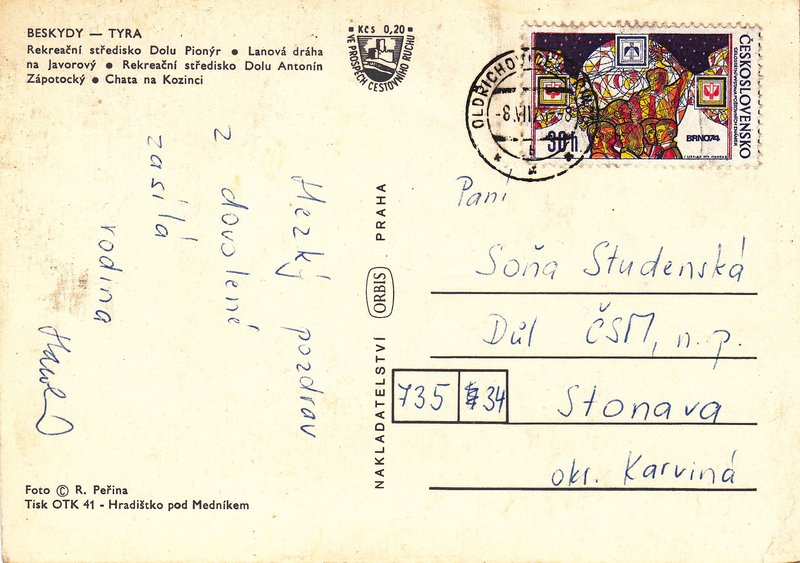 BESKYDY — TYRA
Rekreační středisko Dolu Pionýr ● Lanová dráha
na Javorový ● Rekreační středisko Dolu Antonín
Zápotocký ● Chata na Kozinci
Kčs 0,20
VE PROSPĚCH CESTOVNÍHO RUCHU
OLDŘICHOV
-8.VII.
b
ČESKOSLOVENSKO
30 h
BRNO74
Hezký pozdrav
z dovolené
zasílá
rodina
NAKLADATELSTVÍ ORBIS PRAHA
Paní
Soňa Studenská
Důl ČSM, n.p.
735 34 Stonava
okr. Karviná
Foto © R. Peřina
Tisk OTK 41 - Hradištko pod Medníkem